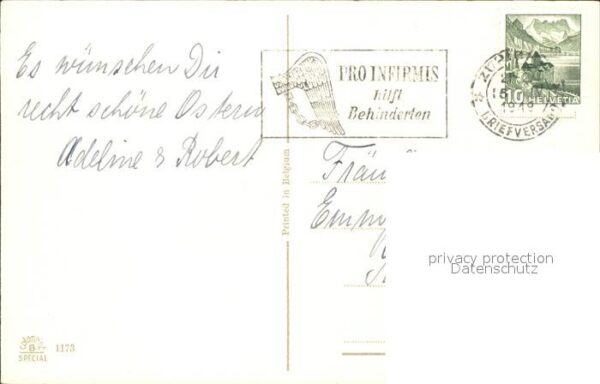 Es wünschen Dir
recht schöne Ostern
Adeline & Robert
PRO INFIRMIS
hilft
Behinderten
10 HELVETIA
BRIEFVERSAND
Printed in Belgium
privacy protection
Datenschutz
SPECIAL
1173